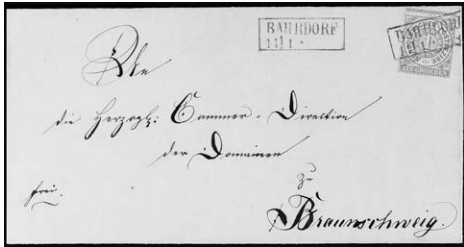 BAHRDORF
An
die Herzogl: Cammer-Direction
der Domainen
zu
frei.
Braunschweig.